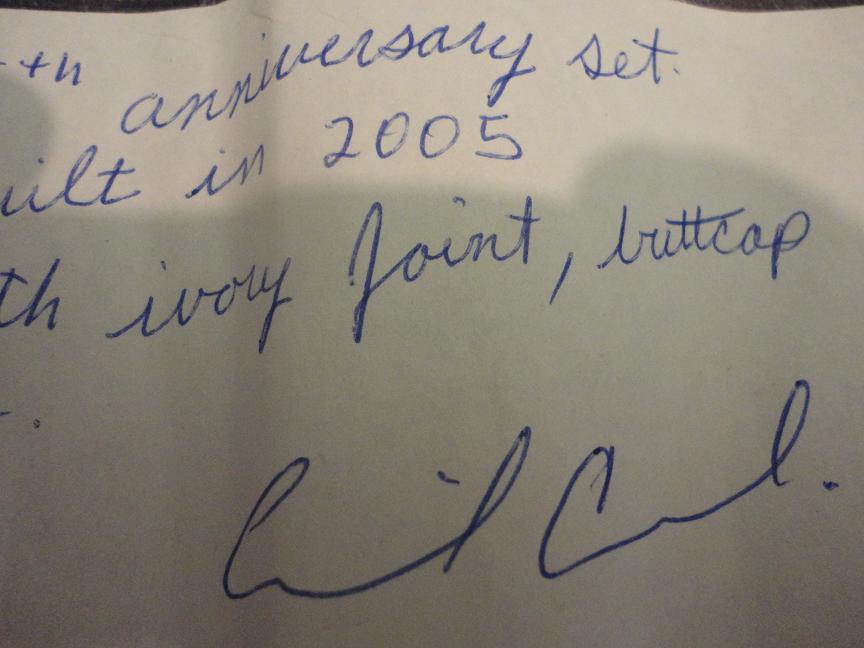 th anniversary set.
uilt in 2005
th ivory Joint, buttcap